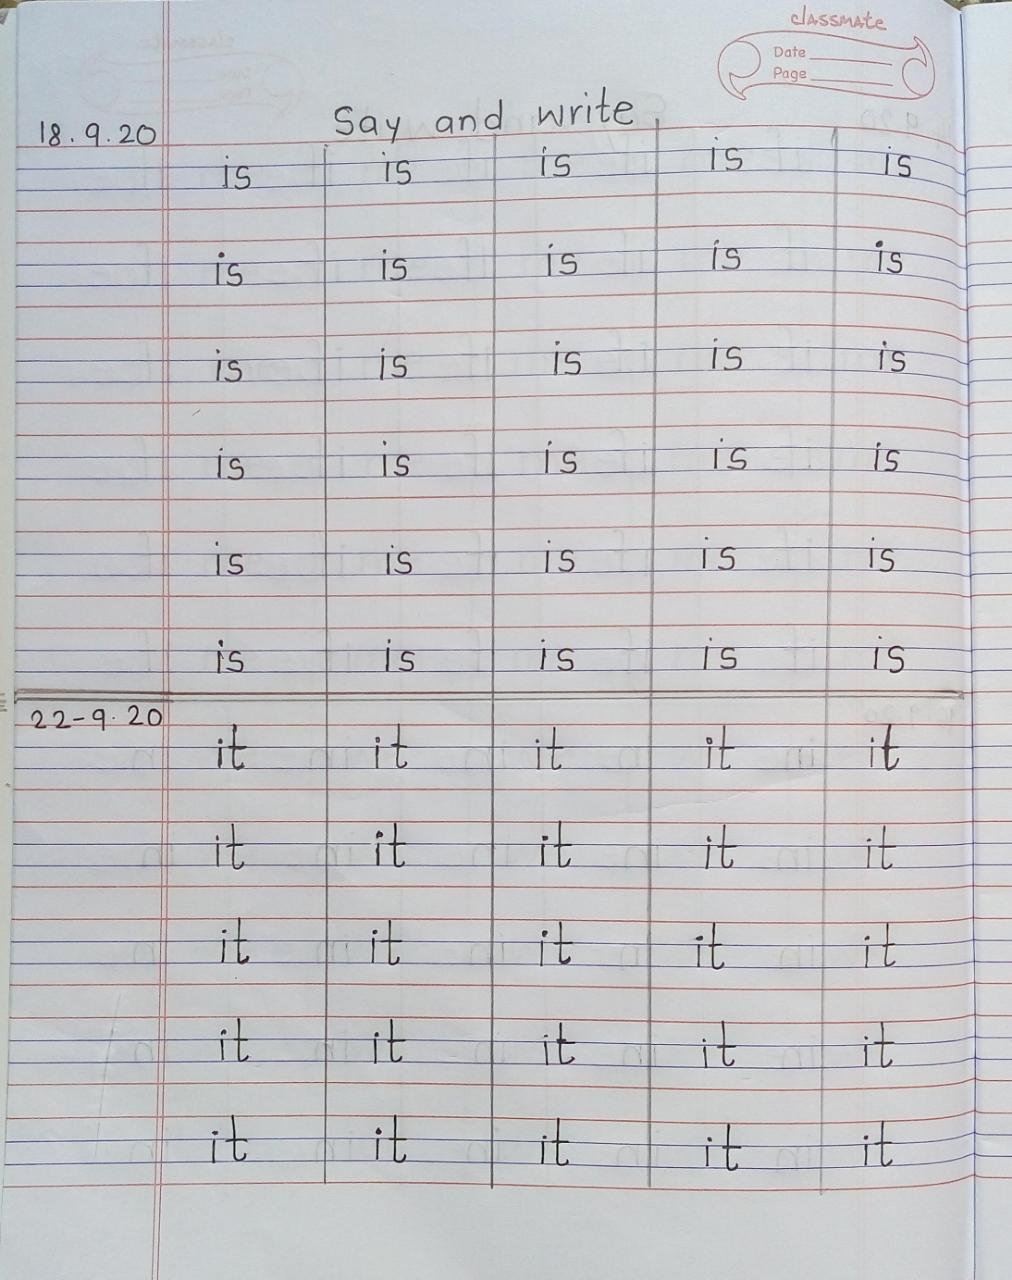 classmate
Date
Page
Say and write
18.9.20
is is is is is
is is is is is
is is is is is
is is is is is
is is is is is
is is is is is
22-9.20
it it it it it
it it it it it
it it it it it
it it it it it
it it it it it